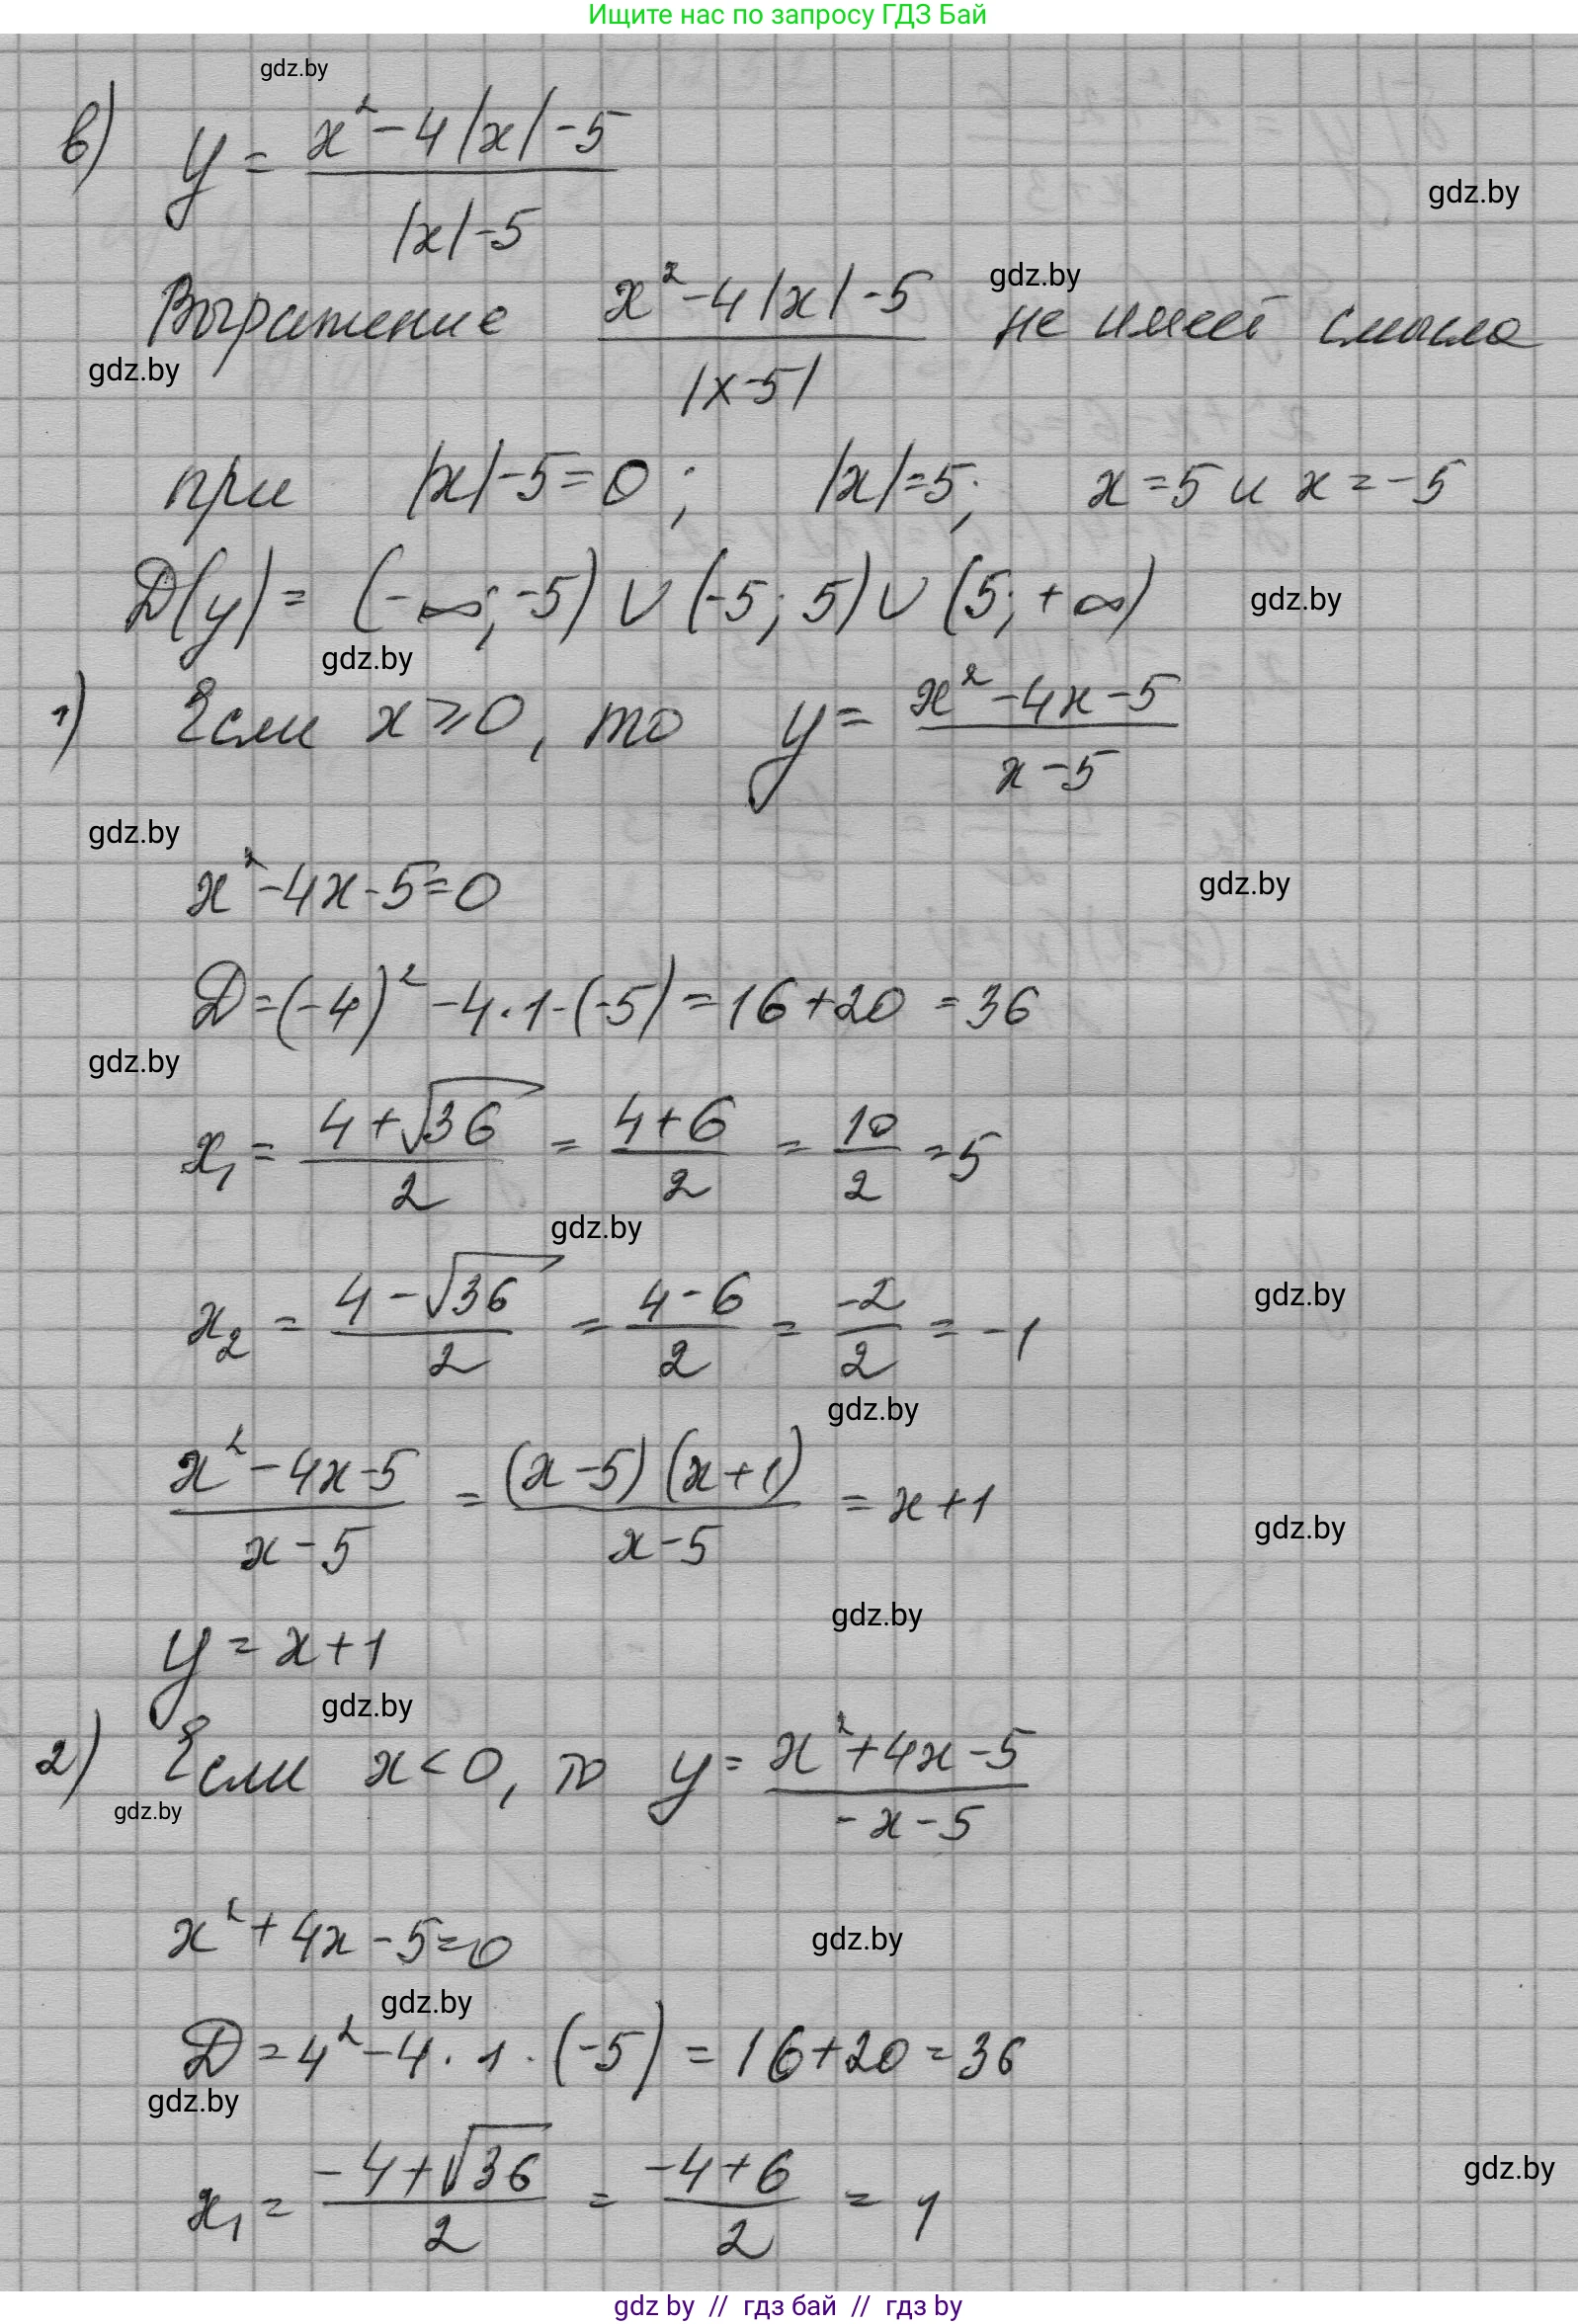 Ищите нас по запросу ГДЗ Бай
gdz.by
в) y = (x² - 4|x| - 5) / (|x| - 5)
gdz.by
gdz.by
Выражение (x² - 4|x| - 5) / |x - 5| не имеет смысла
gdz.by
при |x| - 5 = 0; |x| = 5; x = 5 и x = -5
D(y) = (-∞; -5) ∪ (-5; 5) ∪ (5; +∞)
gdz.by
gdz.by
1) Если x ⩾ 0, то y = (x² - 4x - 5) / (x - 5)
gdz.by
x² - 4x - 5 = 0
gdz.by
D = (-4)² - 4 · 1 · (-5) = 16 + 20 = 36
gdz.by
x₁ = (4 + √36) / 2 = (4 + 6) / 2 = 10 / 2 = 5
gdz.by
x₂ = (4 - √36) / 2 = (4 - 6) / 2 = -2 / 2 = -1
gdz.by
gdz.by
(x² - 4x - 5) / (x - 5) = (x - 5)(x + 1) / (x - 5) = x + 1
gdz.by
gdz.by
y = x + 1
gdz.by
2) Если x < 0, то y = (x² + 4x - 5) / (-x - 5)
gdz.by
x² + 4x - 5 = 0
gdz.by
gdz.by
D = 4² - 4 · 1 · (-5) = 16 + 20 = 36
gdz.by
x₁ = (-4 + √36) / 2 = (-4 + 6) / 2 = 1
gdz.by
gdz by // гдз бай // gdz by